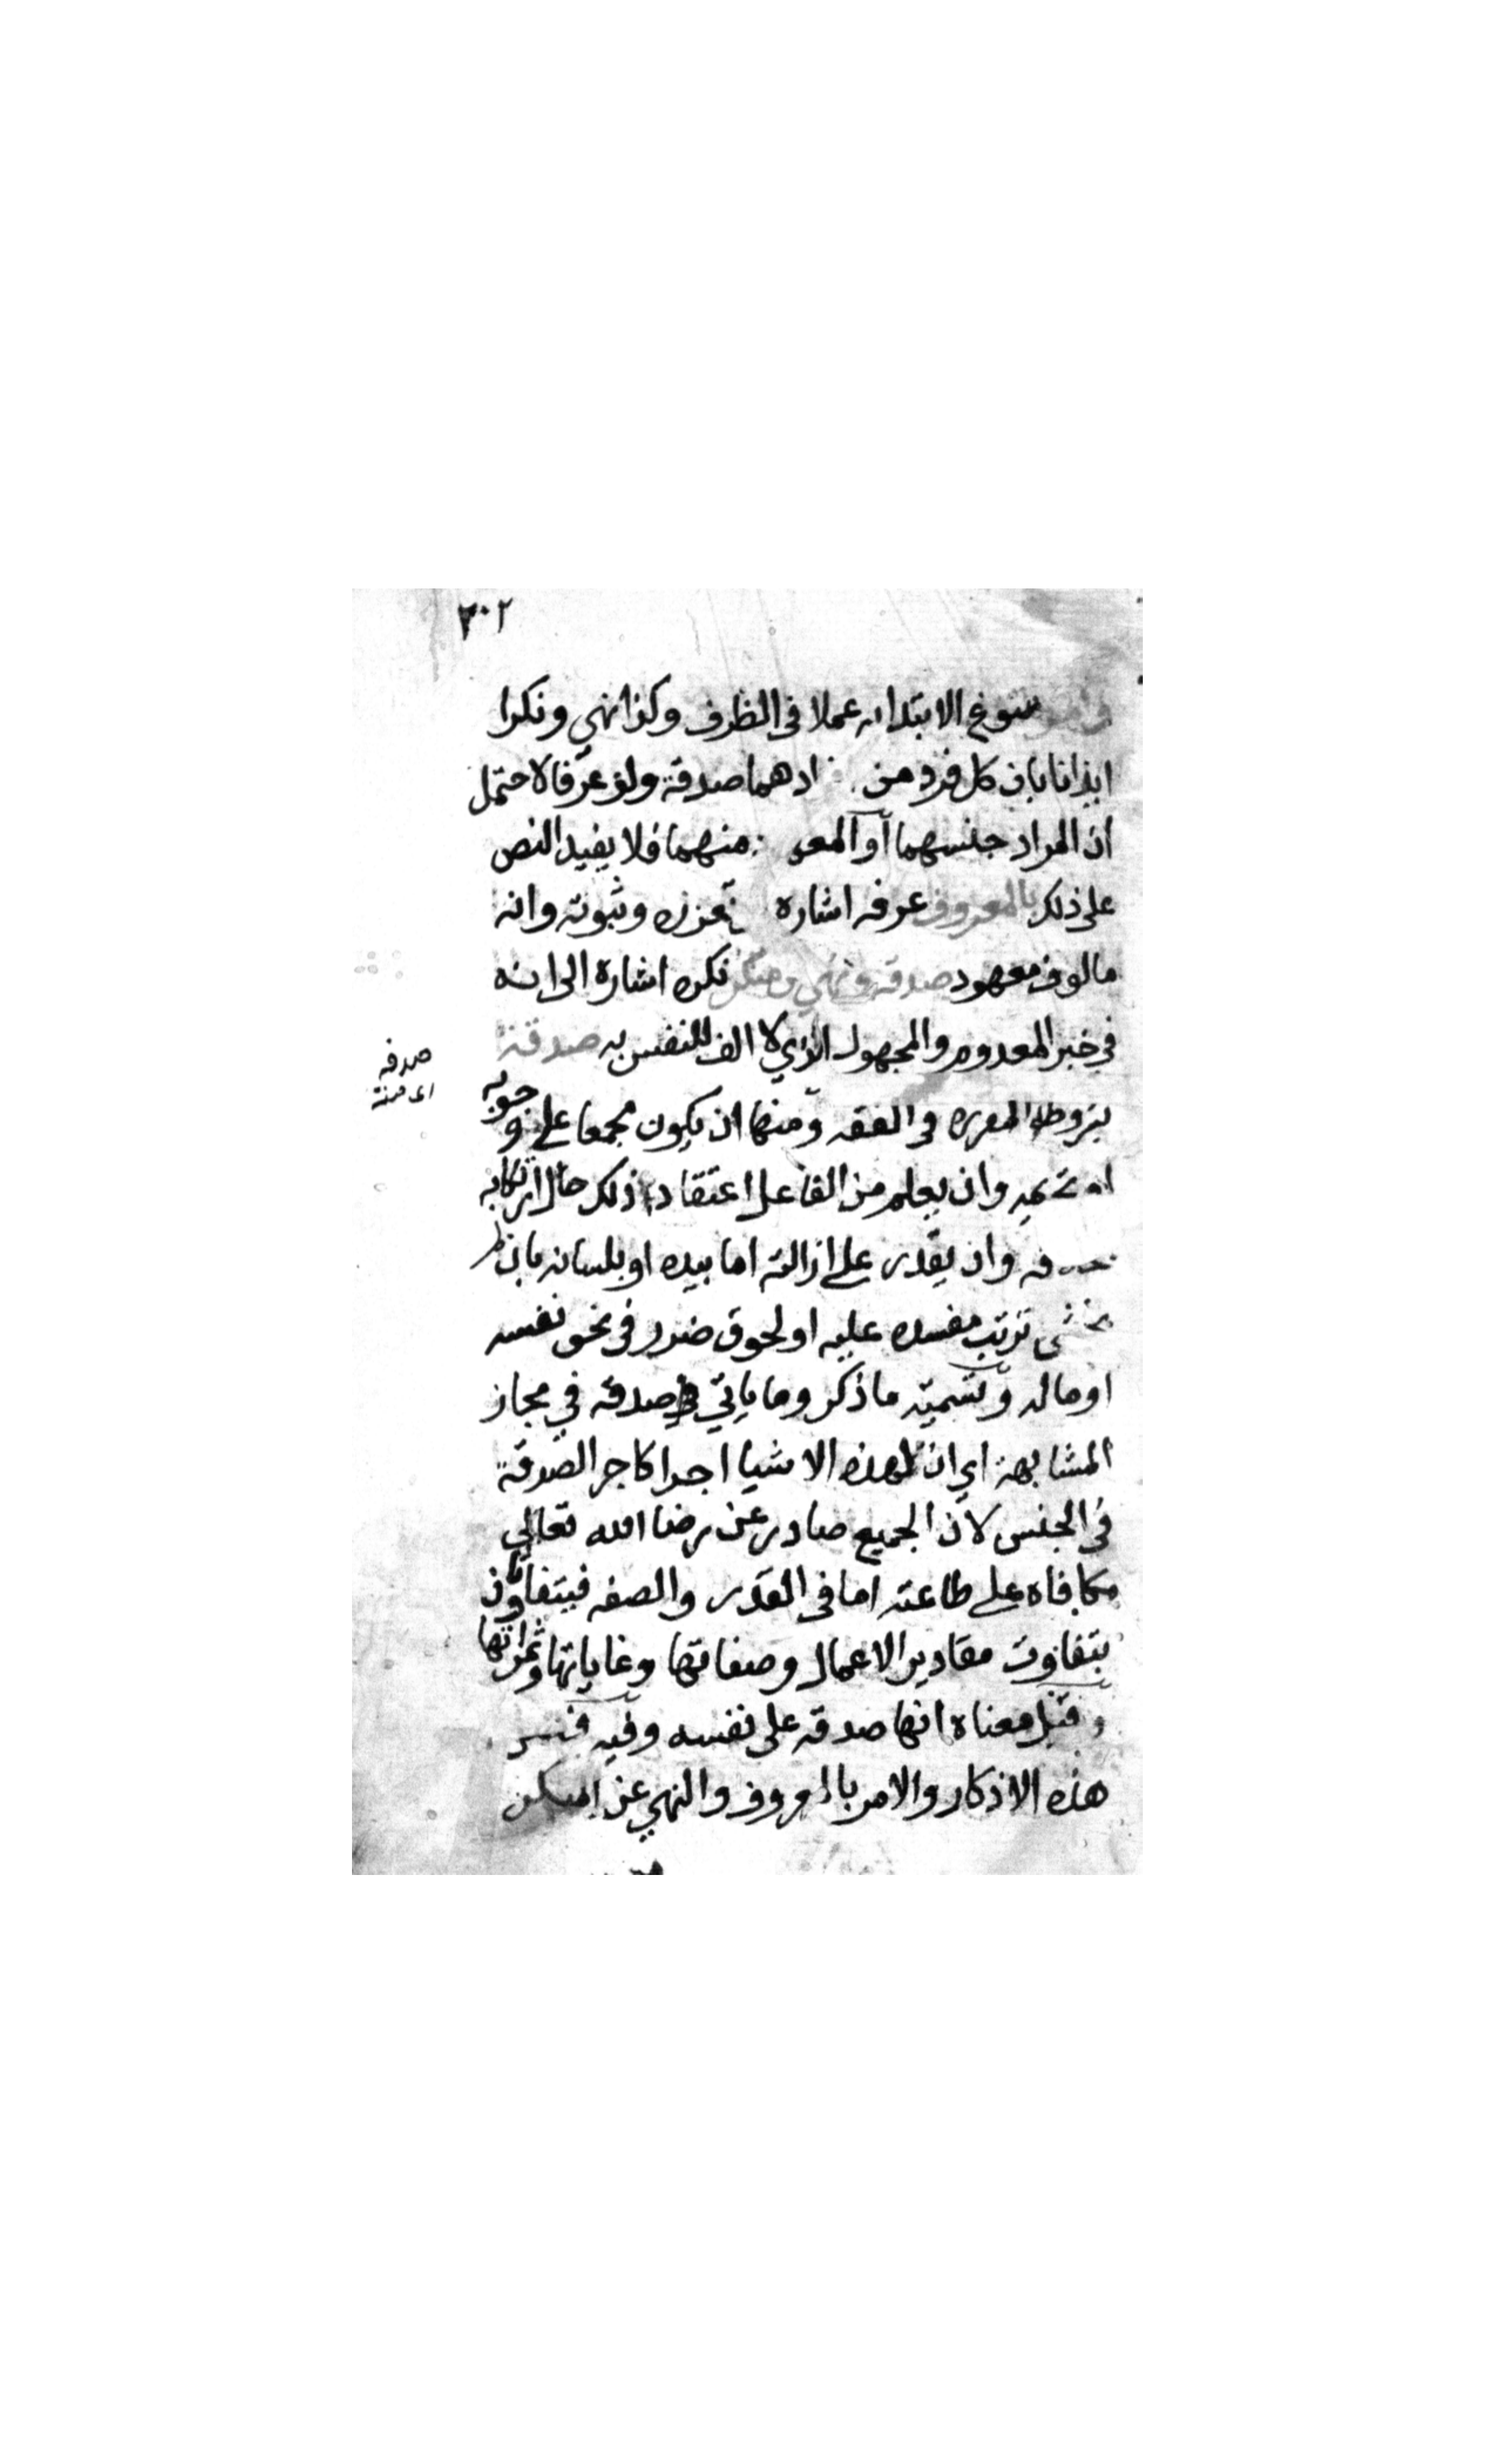 ٢٠٢
سوغ الابتدا به عملا فى الظرف وكذا نهي ونكرا
ايذانا بان كل فرد من ادهما صدقة ولو عرفا لاحتمل
ان المراد جنسهما او المعر منهما فلا يفيد النص
على ذلك بالمعروف عرفه اشاره تقرره وثبوته وانه
مالوف معهود صدقة ونهي عن منكر نكره اشارة الى انه
في خبر المعدوم والمجهول الذي لا الف للنفس به صدقة
صدقه
اى حسنة
بشروطه المقرره فى الفقه ومنها ان يكون مجمعا على وجوبه
او تحريمه وان يعلم من الفاعل اعتقاد ذلك حال ارتكابه
وان يقدر على ازالته اما بيده او بلسانه بان لم
يخشى ترتب مفسده عليه او لحوق ضرر فى نحو نفسه
او ماله وتسمية ما ذكر وما ياتي صدقه في مجاز
المشابهة اي ان لهذه الاشيا اجرا كاجر الصدقة
فى الجنس لان الجميع صادر عن رضا الله تعالى
مكافاه على طاعته اما فى القدر والصفه فيتفاوتان
بتفاوت مقادير الاعمال وصفاتها وغاياتها وثمراتها
وقيل معناه انها صدقة على نفسه وفيه
هذه الاذكار والامر بالمعروف والنهي عن المنكر